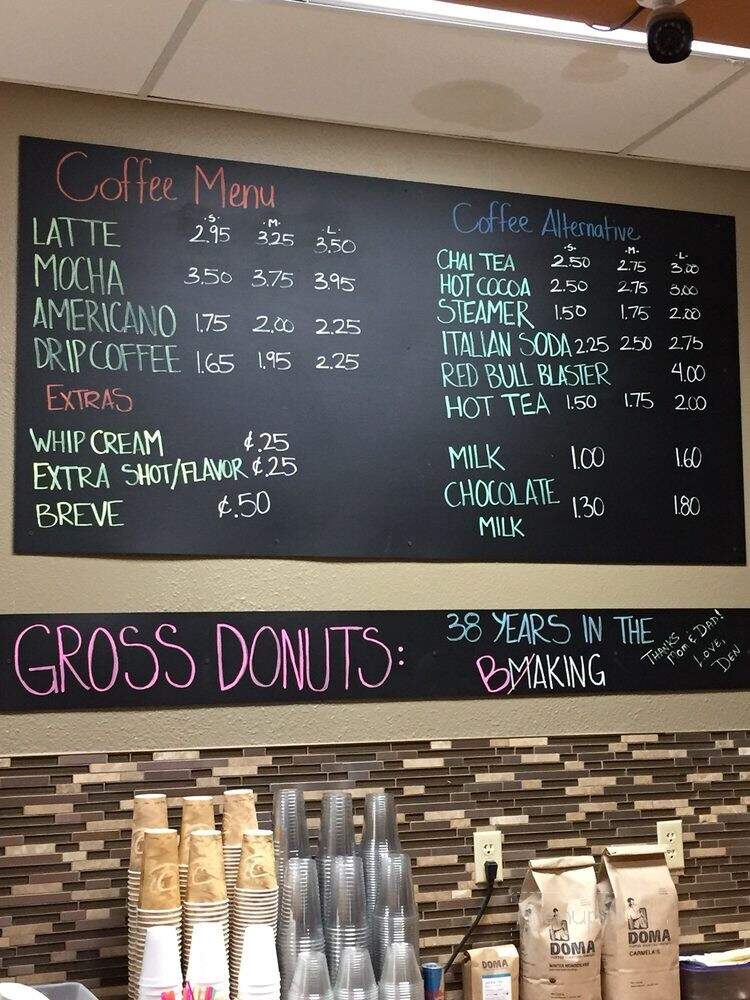 Coffee Menu
·S· ·M· ·L·
LATTE 2.95 3.25 3.50
MOCHA 3.50 3.75 3.95
AMERICANO 1.75 2.00 2.25
DRIP COFFEE 1.65 1.95 2.25
EXTRAS
WHIP CREAM ¢.25
EXTRA SHOT/FLAVOR ¢.25
BREVE ¢.50
Coffee Alternative
·S· ·M· ·L·
CHAI TEA 2.50 2.75 3.00
HOT COCOA 2.50 2.75 3.00
STEAMER 1.50 1.75 2.00
ITALIAN SODA 2.25 2.50 2.75
RED BULL BLASTER 4.00
HOT TEA 1.50 1.75 2.00
MILK 1.00 1.60
CHOCOLATE 1.30 1.80
MILK
GROSS DONUTS:
38 YEARS IN THE
BMAKING
THANKS
MOM & DAD!
LOVE,
DEN
DOMA
DOMA
DOMA
CARMELA'S